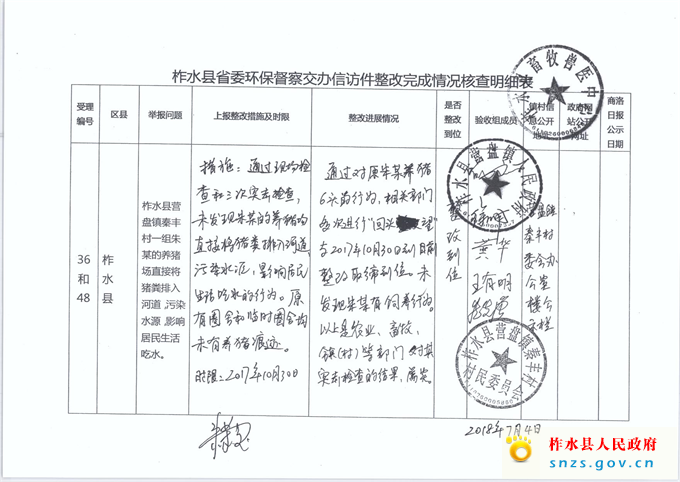 柞水县省委环保督察交办信访件整改完成情况核查明细表
受理
编号
区县
举报问题
上报整改措施及时限
整改进展情况
是否
整改
到位
验收组成员
镇村信
息公开
政府网
站公开
网址
商洛
日报
公示
日期
36
和
48
柞
水
县
柞水县营
盘镇秦丰
村一组朱
某的养猪
场直接将
猪粪排入
河道,污染
水源,影响
居民生活
吃水。
措施：通过现场检
查和三次突击检查，
未发现朱某的养猪场
直接将猪粪排入河道，
污染水源，影响居民
生活吃水的行为。原
有圈舍和临时圈舍均
未有养猪痕迹。
时限：2017年10月30日
通过对原朱某养猪
6头的行为，相关部门
多次进行“回头
与2017年10月30日到目前
整改取缔到位。未
发现朱某有饲养行为。
以上是农业、畜牧、
镇(村)等部门对其
突击检查的结果，属实。
整
改
到
位
营盘镇
秦丰村
委会办
公室
楼会
王有明
柞水县畜牧兽医中心
柞水县营盘镇人民政府
柞水县营盘镇秦丰村
村民委员会
2018年7月4日
柞水县人民政府
snzs.gov.cn